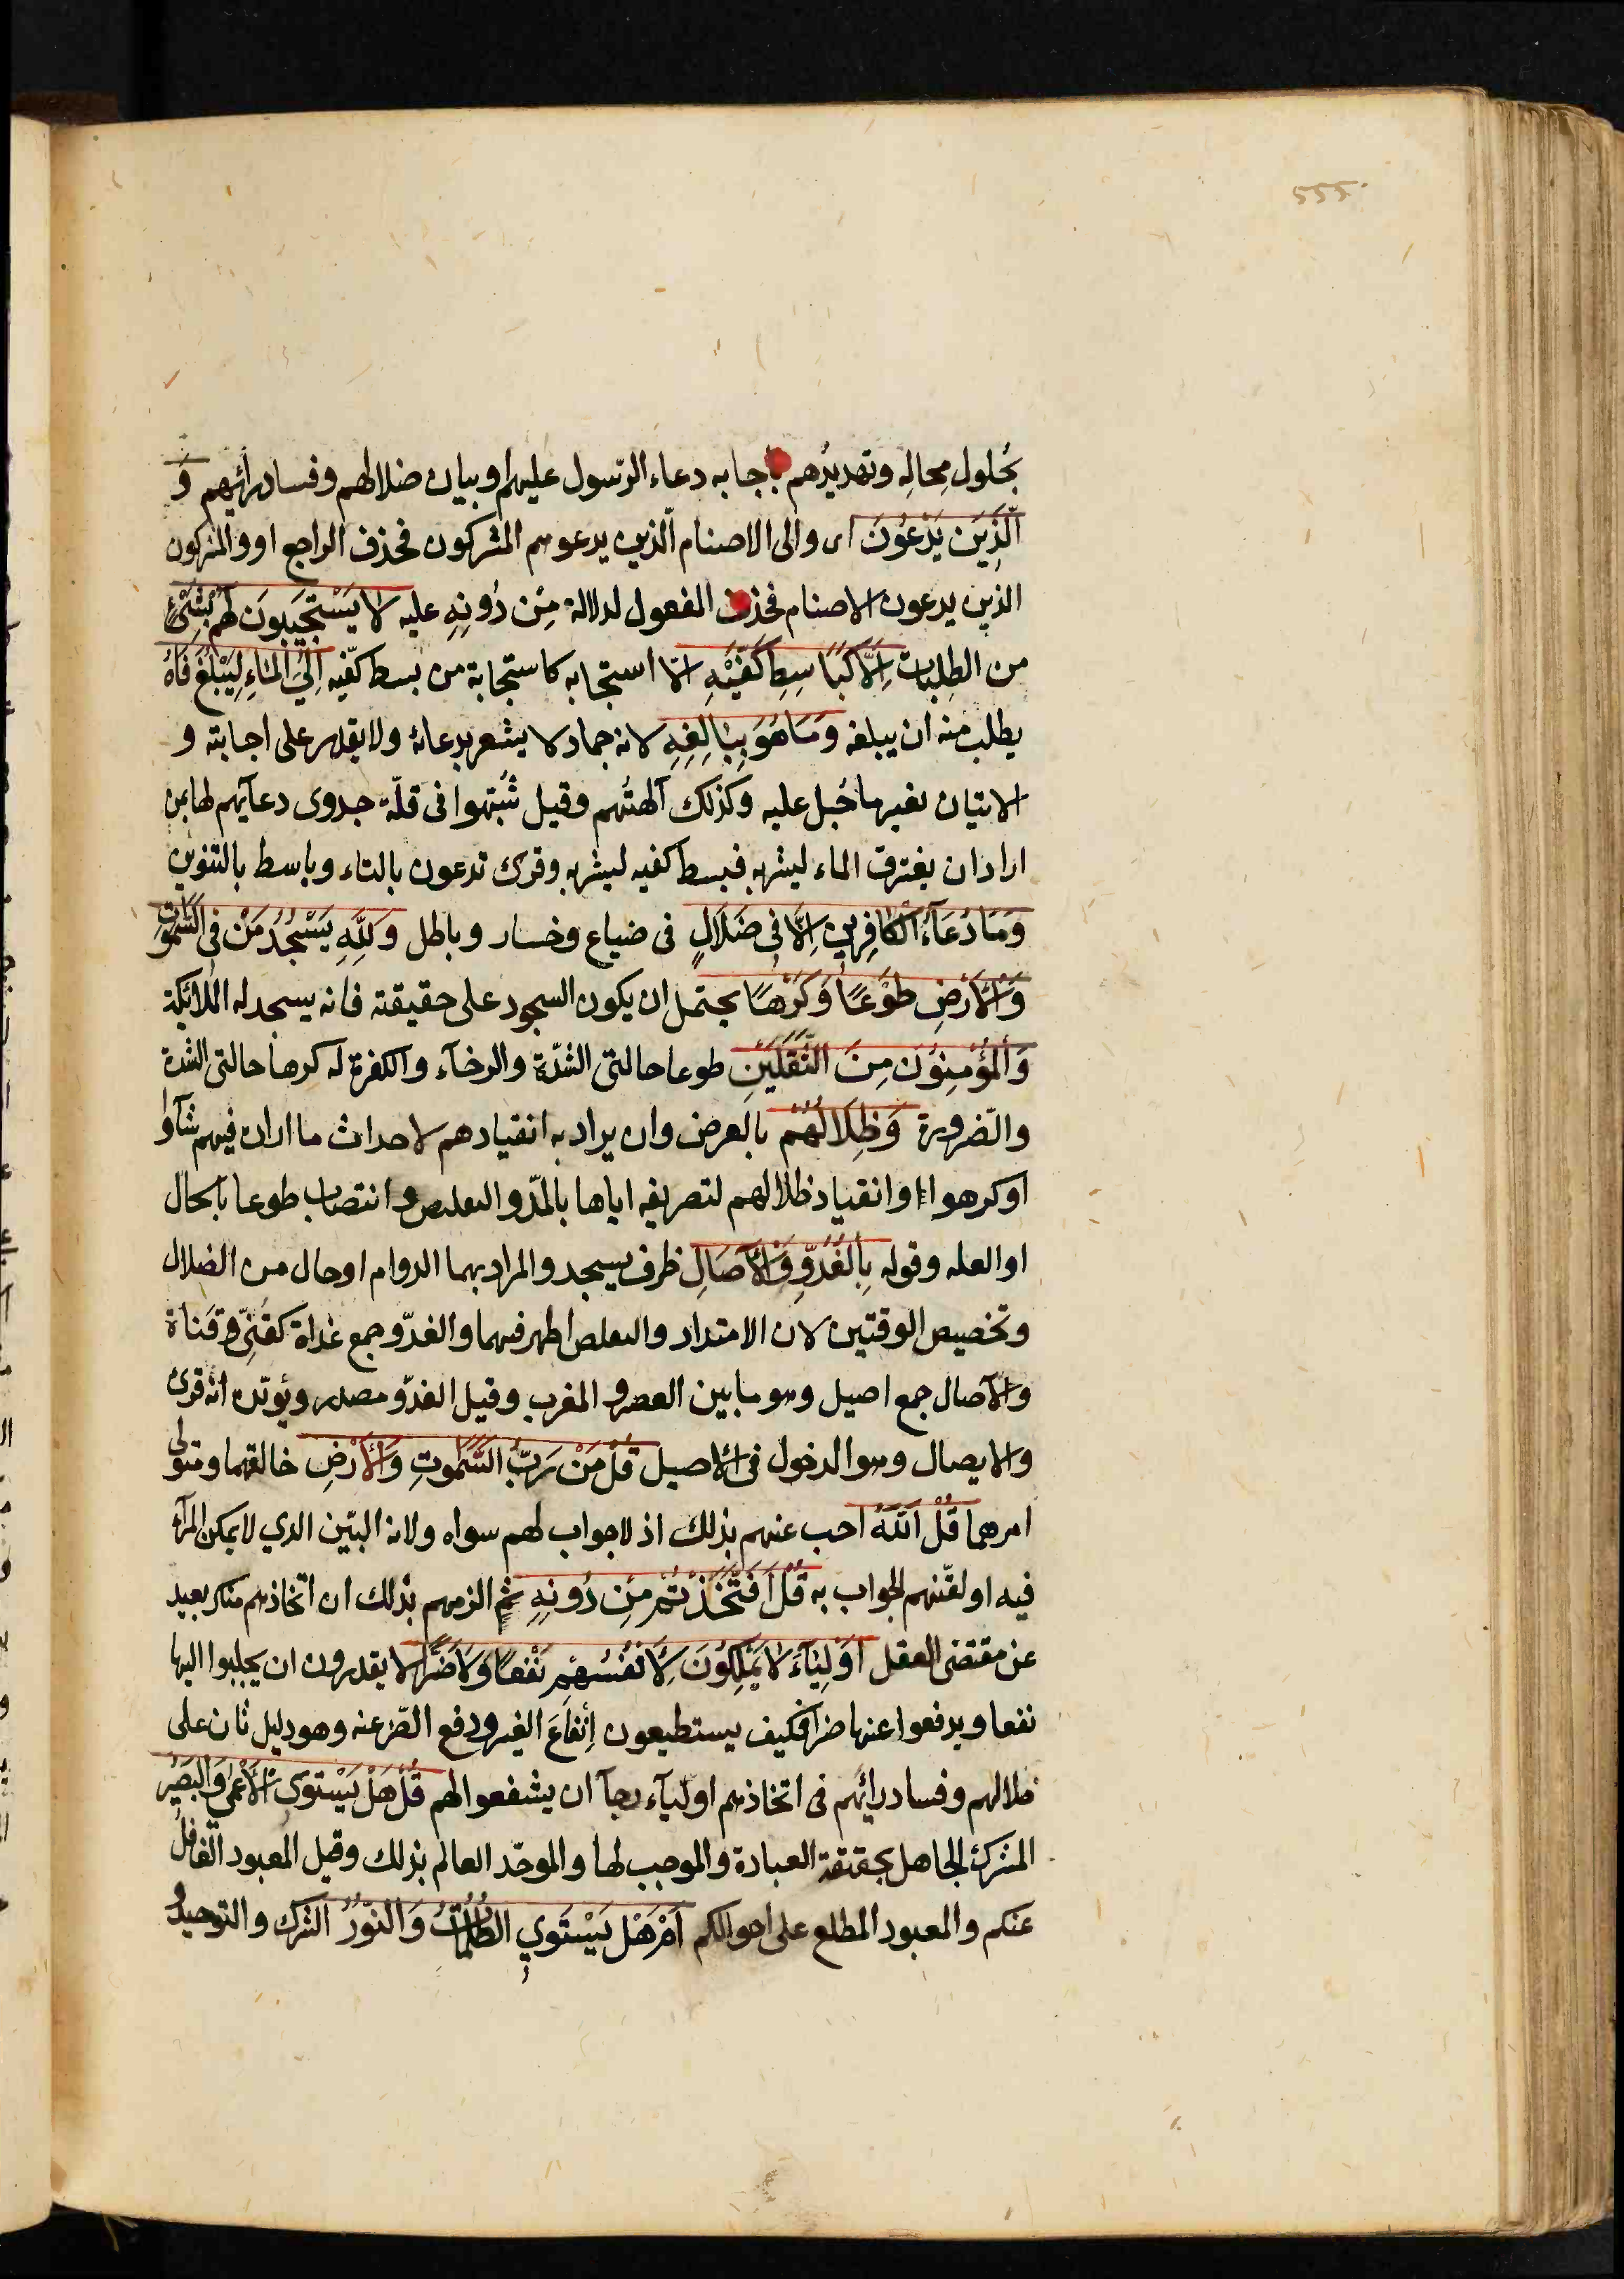 بحُلول مِحالِهِ وتهديدُهم باجابه دعاء الرّسول عليهم او بيان ضلالهم وفساد رائيهم وَ
الَّذِيَن يَدْعُوْنَ اى والى الاصنام الّذين يدعوهم المشركون فحذف الراجع او والمشركون
الذين يدعون الاصنام فحذف المفعول لدلالة مِنْ دُونِهِ عليه لَا يَسْتَجْيَبُونَ لَهُمْ بِشَئٍْ
من الطلبات اِلَّا كَبَاسِطِ كَفَّيْهِ الّا استجابه كاستجابة من بسط كفّيه اِلَىَ الْمَاءِ لِيَبْلُغَ فَاهُ
يطلب منه ان يبلغه وَمَاهُوَ بِبَالِغِهِ لانه جماد لا يشعر بدعائه ولا يقدر على اجابته و
الاتيان بغير ما جُبل عليه وكذلك آلهتُهم وقيل شُبّهوا فى قلّة جدوى دعآئهم لها بمن
اراد ان يغترف الماء ليشربه فبسط كفيه ليشربه وقرئ تدعون بالتاء وباسط بالتنوين
وَمَا دُعَآءُ الْكَافِرِينَ اِلَّا فِى ضَلَالٍ فى ضياع وخسار وباطل وَلِلّٰهِ يَسْجُدُ مَنْ فِى السَّمٰوَاتِ
وَالْاَرْضِ طَوْعًا وَكَرْهًا يحتمل ان يكون السجود على حقيقته فانه يسجد له الملائكة
وَالْمُؤْمِنُوْنَ مِنَ الثَّقَلَيْنِ طوعا حالتى الشدّة والرخآء والكفرة له كرها حالتى الشدة
والضّرورة وَظِلَالُهُمْ بالعرض وان يراد به انقيادهم لاحداث ما اراده فيهم شآؤا
اوكرهوا وانقياد ظلالهم لتصريفه اياها بالمدّ والتعليص وانتصاب طوعا بالحال
او العله وقوله بِالْغُدُوِّ وَالْآصَالِ ظرف يسجد والمراد بهما الدوام او حال من الضلال
وتخصيص الوقتين لان الامتداد والتعلص اظهر فيهما والغدّو جمع غداة كقَنِىّ وقناة
والآصال جمع اصيل وهو ما بين العصر والمغرب وقيل الغدّو مصدر ويؤيّده انّه قرئ
والايصال وهو الدخول فى الاصيل قُلْ مَنْ رَبُّ السَّمٰوٰتِ وَالْاَرْضِ خالقهما ومتولى
امرهما قُلْ اللّٰهُ اجب عنهم بذلك اذ لا جواب لهم سواه ولانه البيّن الذي لا يمكن المرآء
فيه او لقّنهم الجواب به قُلْ اَفَتَّخَذْتُمْ مِنْ دُونِهِ ثم الزمهم بذلك ان اتخاذهم منكر بعيد
عن مقتضى العقل اَوْلِيَآءَ لَا يَمْلِكُوْنَ لِاَنْفُسِهِمْ نَفْعًا وَلَا ضَرًّا لا يقدرون ان يجلبوا اليها
نفعا ويدفعوا عنها ضرا فكيف يستطيعون اِنفاعَ الغير ودفع الضر عنه وهو دليل ثان على
ضلالهم وفساد رائهم فى اتخاذهم اوليآء رجآ ان يشفعوا لهم قُلْ هَلْ يَسْتَوِى الْاَعْمٰى وَالْبَصِيُر
المشرك الجاهل بحقيقة العبادة والموجب لها والموحّد العالم بذلك وقيل المعبود الغافل
عنكم والمعبود المطلع على احوالكم اَمْ هَلْ يَسْتَوِي الظُّلُمَاتُ وَالنّوُرُ الشرك والتوحيد